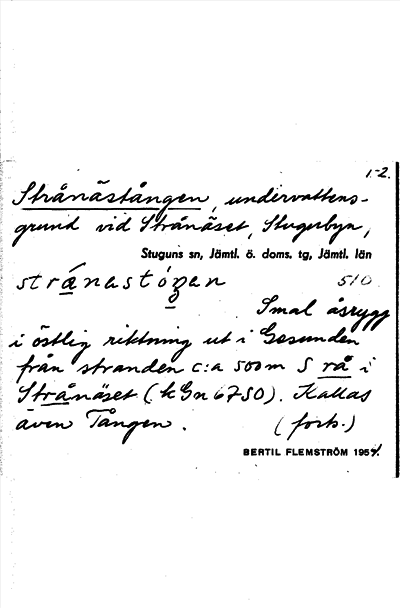 1.-2.
Strånästången, undervattens-
grund vid Strånäset, Stugubyn,
Stuguns sn, Jämtl. ö. doms. tg, Jämtl. län
510
Smal åsrygg
i östlig riktning ut i Gesunden
från stranden c:a 500 m S rå i
Strånäset (kGn 6750). Kallas
även Tången. (forts.)
BERTIL FLEMSTRÖM 1954.